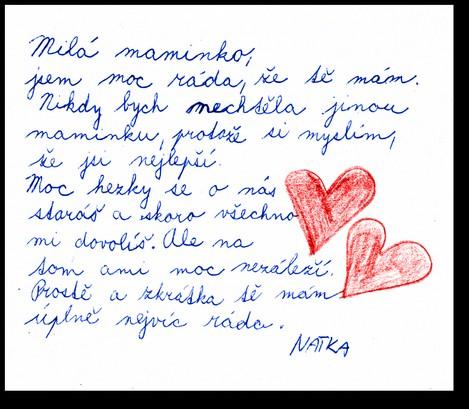 Milá maminko,
jsem moc ráda, že tě mám.
Nikdy bych nechtěla jinou
maminku, protože si myslím,
že jsi nejlepší.
Moc hezky se o nás
staráš a skoro všechno
mi dovolíš. Ale na
tom ani moc nezáleží.
Prostě a zkrátka tě mám
úplně nejvíc ráda.
NATKA